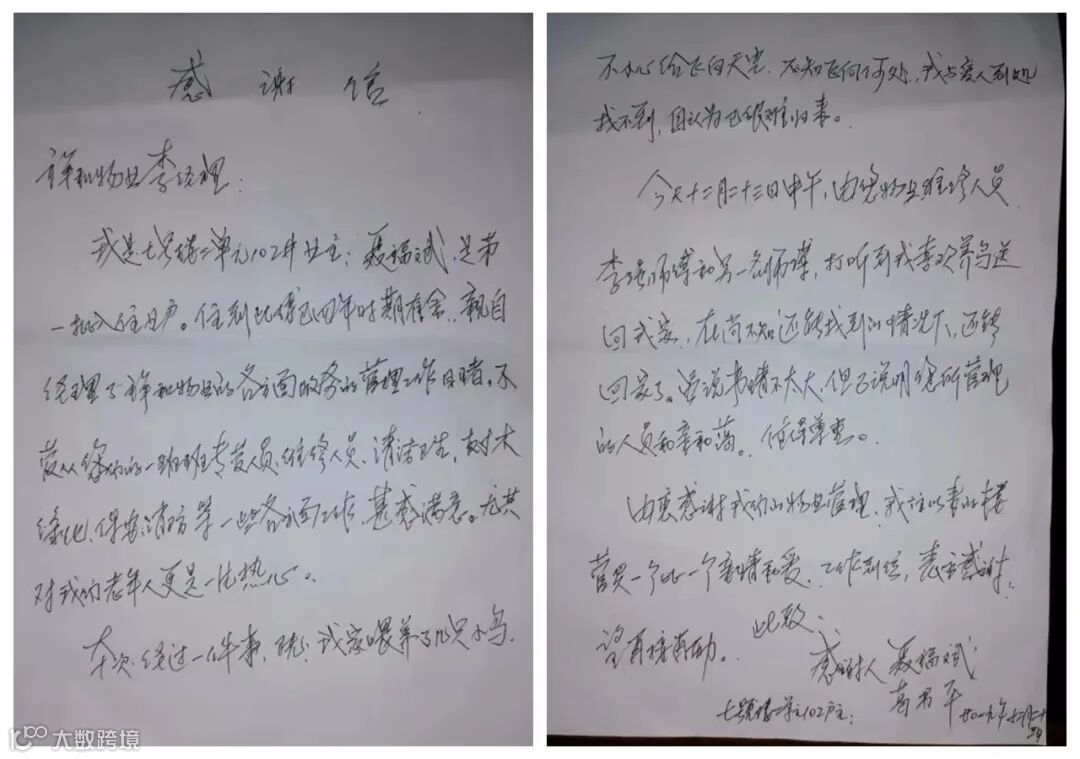 感谢信
祥和物业李经理:
我是七号楼二单元102井业主:聂福斌,是第
一批入住日户。住到此楼已四年时期有余,亲自
经理了祥和物业的各方面的管理工作目睹,不
管从您们的一班班专管人员、维修人员、清洁卫生,树木
绿化、保安消防等一些各方面工作,甚感满意。尤其
对我们老年人更是一片热心。
本次经过一件事,我家喂养了几只小鸟,
不小心给飞向天空,不知飞向何处,我与爱人到处
找不到,自认为已很难归来。
今天十二月二十三日中午,由您物业维修人员
李师傅和另一名师傅,打听到我喜欢养鸟送
回我家,在尚不知还能找到的情况下,还能
回家了。虽说事情不太大,但已说明您所管理
的人员和亲和蔼。值得尊重。
由衷感谢我们的物业管理,我住以来的楼
管员一个比一个亲情和爱,工作到位,表示感谢,
望再接再励。此致:
感谢人 聂福斌
七号楼二单元102户主: